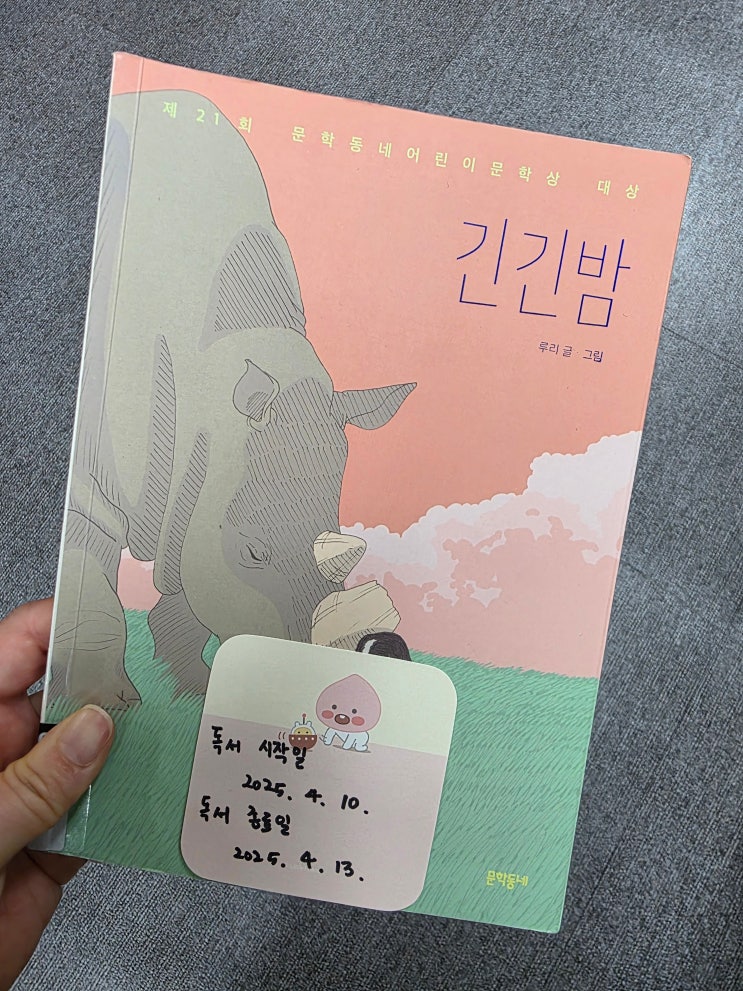 제 21회 문학동네어린이문학상 대상
긴긴밤
루리 글·그림
독서 시작일
2025. 4. 10.
독서 종료일
2025. 4. 13.
문학동네